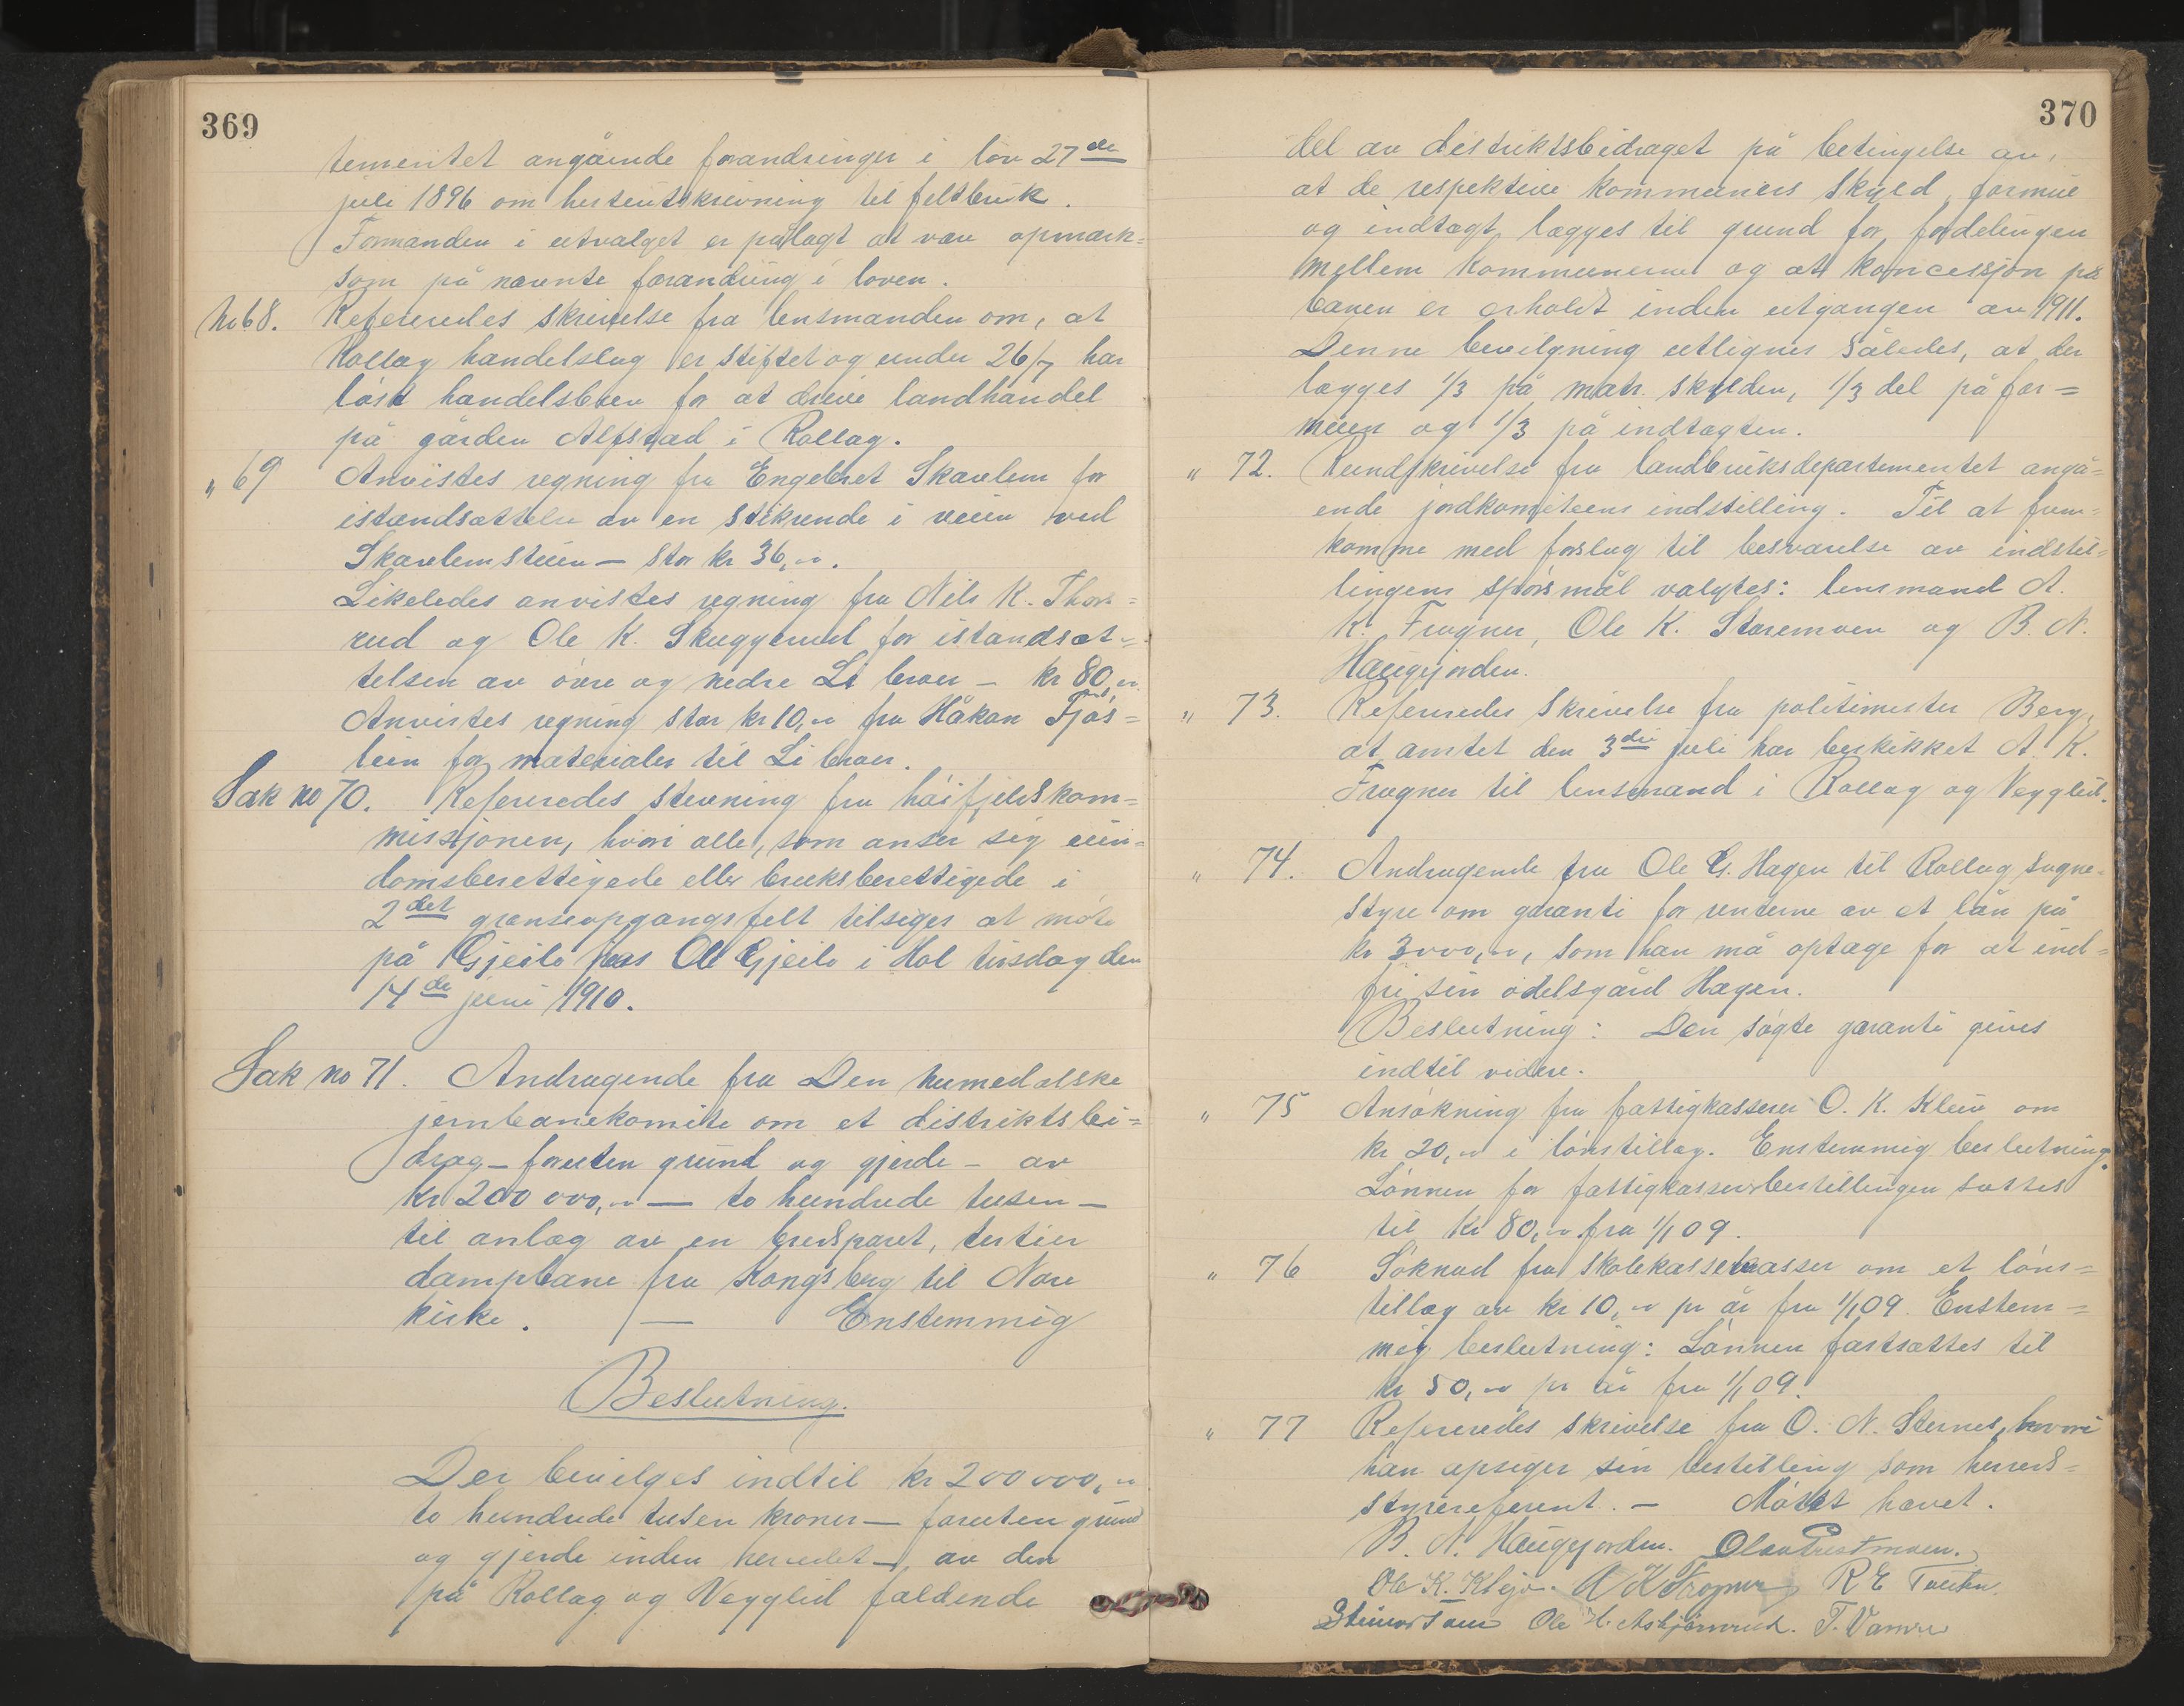 369
tementet angående forandringer i lov 27de
juli 1896 om hesteutskrivning til feltbruk.
Formanden i utvalget er pålagt at være opmærk=
som på nævnte forandring i loven.
No 68. Refereredes skrivelse fra lensmanden om, at
Rollag handelslag er stiftet og under 26/7 har
løist handelsbrev for at drive landhandel
på gården Alfstad i Rollag.
" 69 Anvistes regning fra Engebret Skavlem for
istandsættelse av en stikrende i veien ved
Skavlemsteien – stor kr 36,00.
Likeledes anvistes regning fra Nils K. Thors=
rud og Ole K. Skuggerud for istandsæt=
telsen av øvre og nedre Li broer – kr 80,00
Anvistes regning stor kr 10,00 fra Håkon Fjøs=
lein for materialer til Li broer.
Sak no 70. Refereredes stevning fra høifjeldskom=
missjonen, hvori alle, som anser sig eien=
domsberettigede eller bruksberettigede i
2det grænseopgangsfelt tilsiges at møte
på Gjeilo hos Ole Gjeilo i Hol tirsdag den
14de juni 1910.
Sak no 71. Andragende fra Den numedalske
jernbanekomite om et distriktsbi=
drag – foruten grund og gjerde – av
kr 200 000,00 – to hundrede tusen –
til anlæg av en bredsporet, tertiær
dampbane fra Kongsberg til Nore
kirke. — Enstemmig
Beslutning.
Der bevilges indtil kr 200 000,00
to hundrede tusen kroner – foruten grund
og gjerde inden herredet –, av den
på Rollag og Vegglid faldende
370
del av distriktsbidraget på betingelse av,
at de respektive kommuners skyld, formue
og indtægt lægges til grund for fordelingen
mellem kommunerne og at koncessjon på
banen er erholdt inden utgangen av 1911.
Denne bevilgning utlignes således, at der
lægges 1/3 på matr. skylden, 1/3 del på for=
muen og 1/3 på indtægten.
" 72. Rundskrivelse fra landbruksdepartementet angå=
ende jordkomiteens indstilling. Til at frem=
komme med forslag til besvarelse av indstil=
lingens spørsmål valgtes: lensmand A.
K. Frogner, Ole K. Støremoen og B. N.
Haugejorden.
" 73. Refereredes skrivelse fra politimester Berg,
at amtet den 3die juli har beskikket A. K.
Frogner til lensmand i Rollag og Vegglid.
" 74. Andragende fra Ole G. Hagen til Rollag sogne=
styre om garanti for renterne av et lån på
kr 3000,00, som han må optage for at ind=
fri sin odelsgård Hagen.
Beslutning: Den søgte garanti gives
indtil videre.
" 75 Ansøkning fra fattigkasserer O. K. Kleiv om
kr 20,00 i lønstillæg. Enstemmig beslutning.
Lønnen for fattigkassererbestillingen sættes
til kr 80,00 fra 1/1 09.
" 76 Søknad fra skolekassekasser om et løns=
tillæg av kr 10,00 pr år fra 1/1 09. Enstem=
mig beslutning: Lønnen fastsættes til
kr 50,00 pr år fra 1/1 09.
" 77 Refereredes skrivelse fra O. N. Sternes, hvori
han opsiger sin bestilling som herreds=
styrereferent. – Møtet hævet.
B. N. Haugejorden. Olav Præstmoen.
Ole K. Klejv. A K Frogner R E
Ole H. Asbjørnrud. T. Vamre